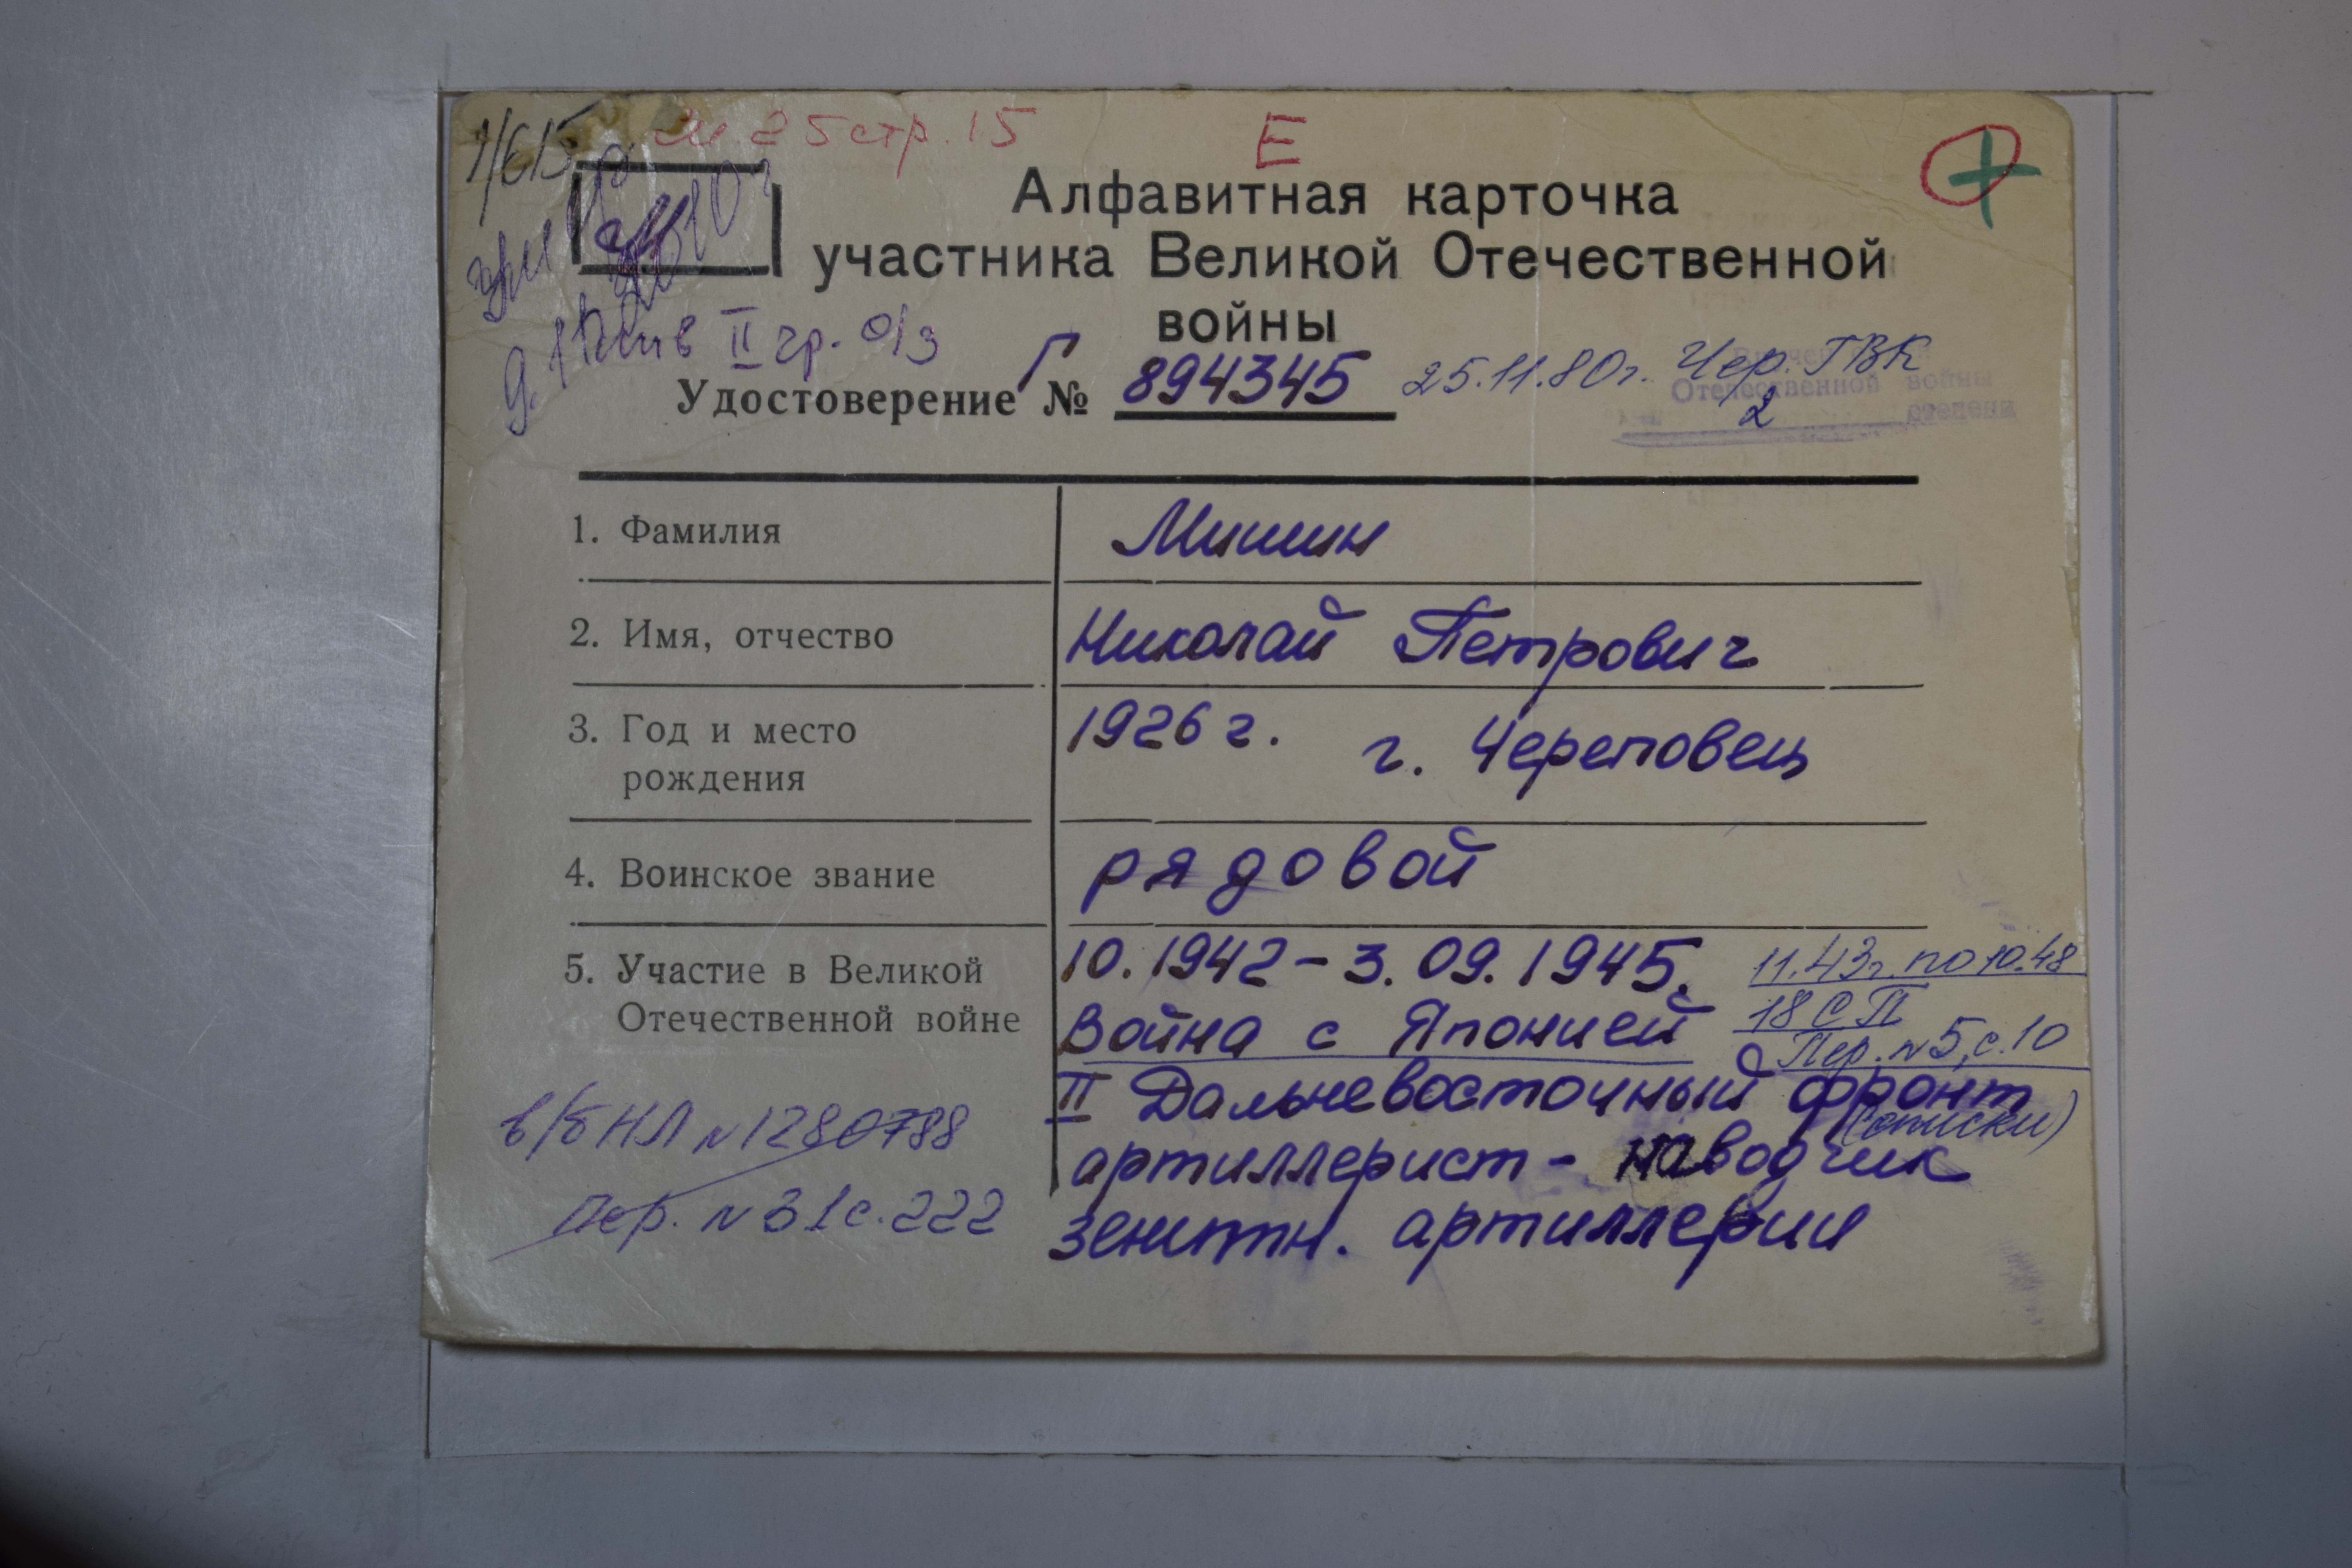 1/615 м 25 стр. 15
Е
Алфавитная карточка
участника Великой Отечественной
войны
II гр. о/з
Удостоверение Г № 894345 25.11.80г. Чер. ГВК
Отечественной войны
2 степени
1. Фамилия Мишин
2. Имя, отчество Николай Петрович
3. Год и место 1926 г. г. Череповец
рождения
4. Воинское звание рядовой
5. Участие в Великой 10.1942 - 3.09.1945. 11.43г. по 10.48
Отечественной войне Война с Японией 18 СП
Пер. №5, с. 10
II Дальневосточный фронт
(списки)
в/б НЛ №1280788 артиллерист - наводчик
Пер. №31 с. 222 зенитн. артиллерии